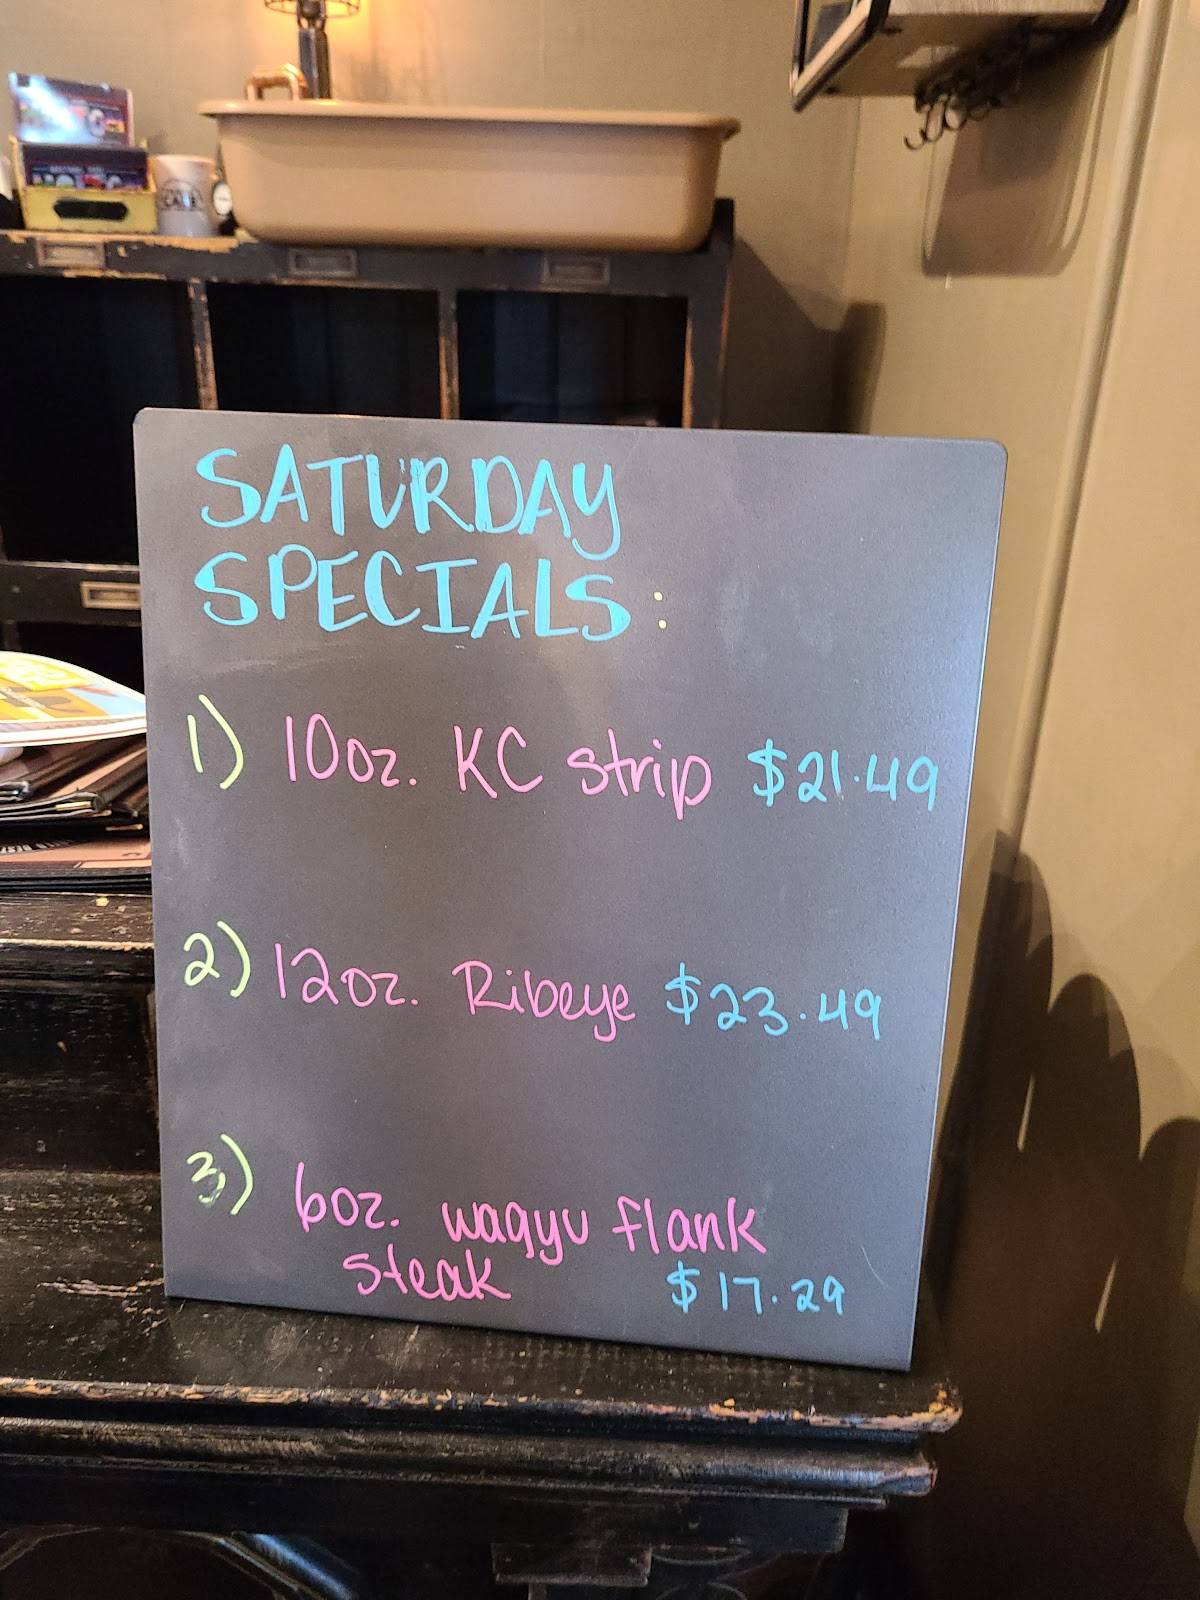 SATURDAY
SPECIALS:
1) 10oz. KC strip $21.49
2) 12oz. Ribeye $23.49
3) 6oz. wagyu flank
steak $17.29